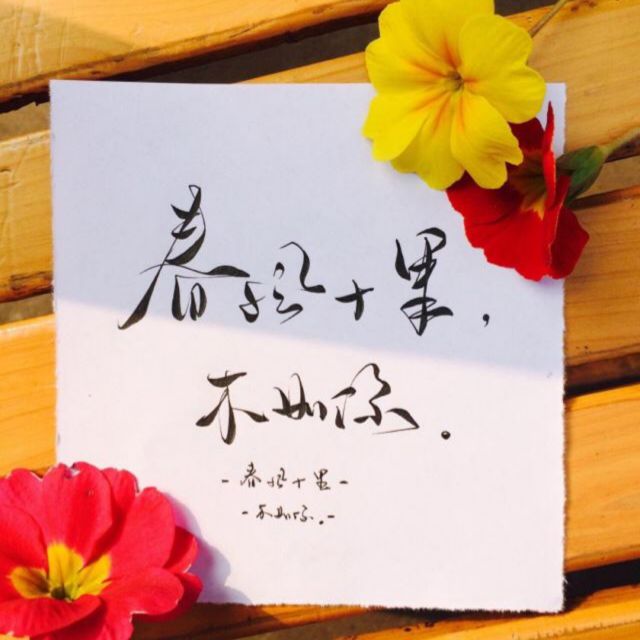 春风十里，
不如你.
-春风十里-
-不如你.-